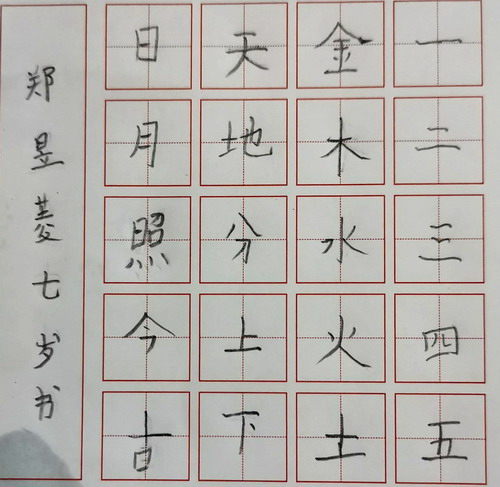 一二三四五
金木水火土
天地分上下
日月照今古
郑昱菱七岁书